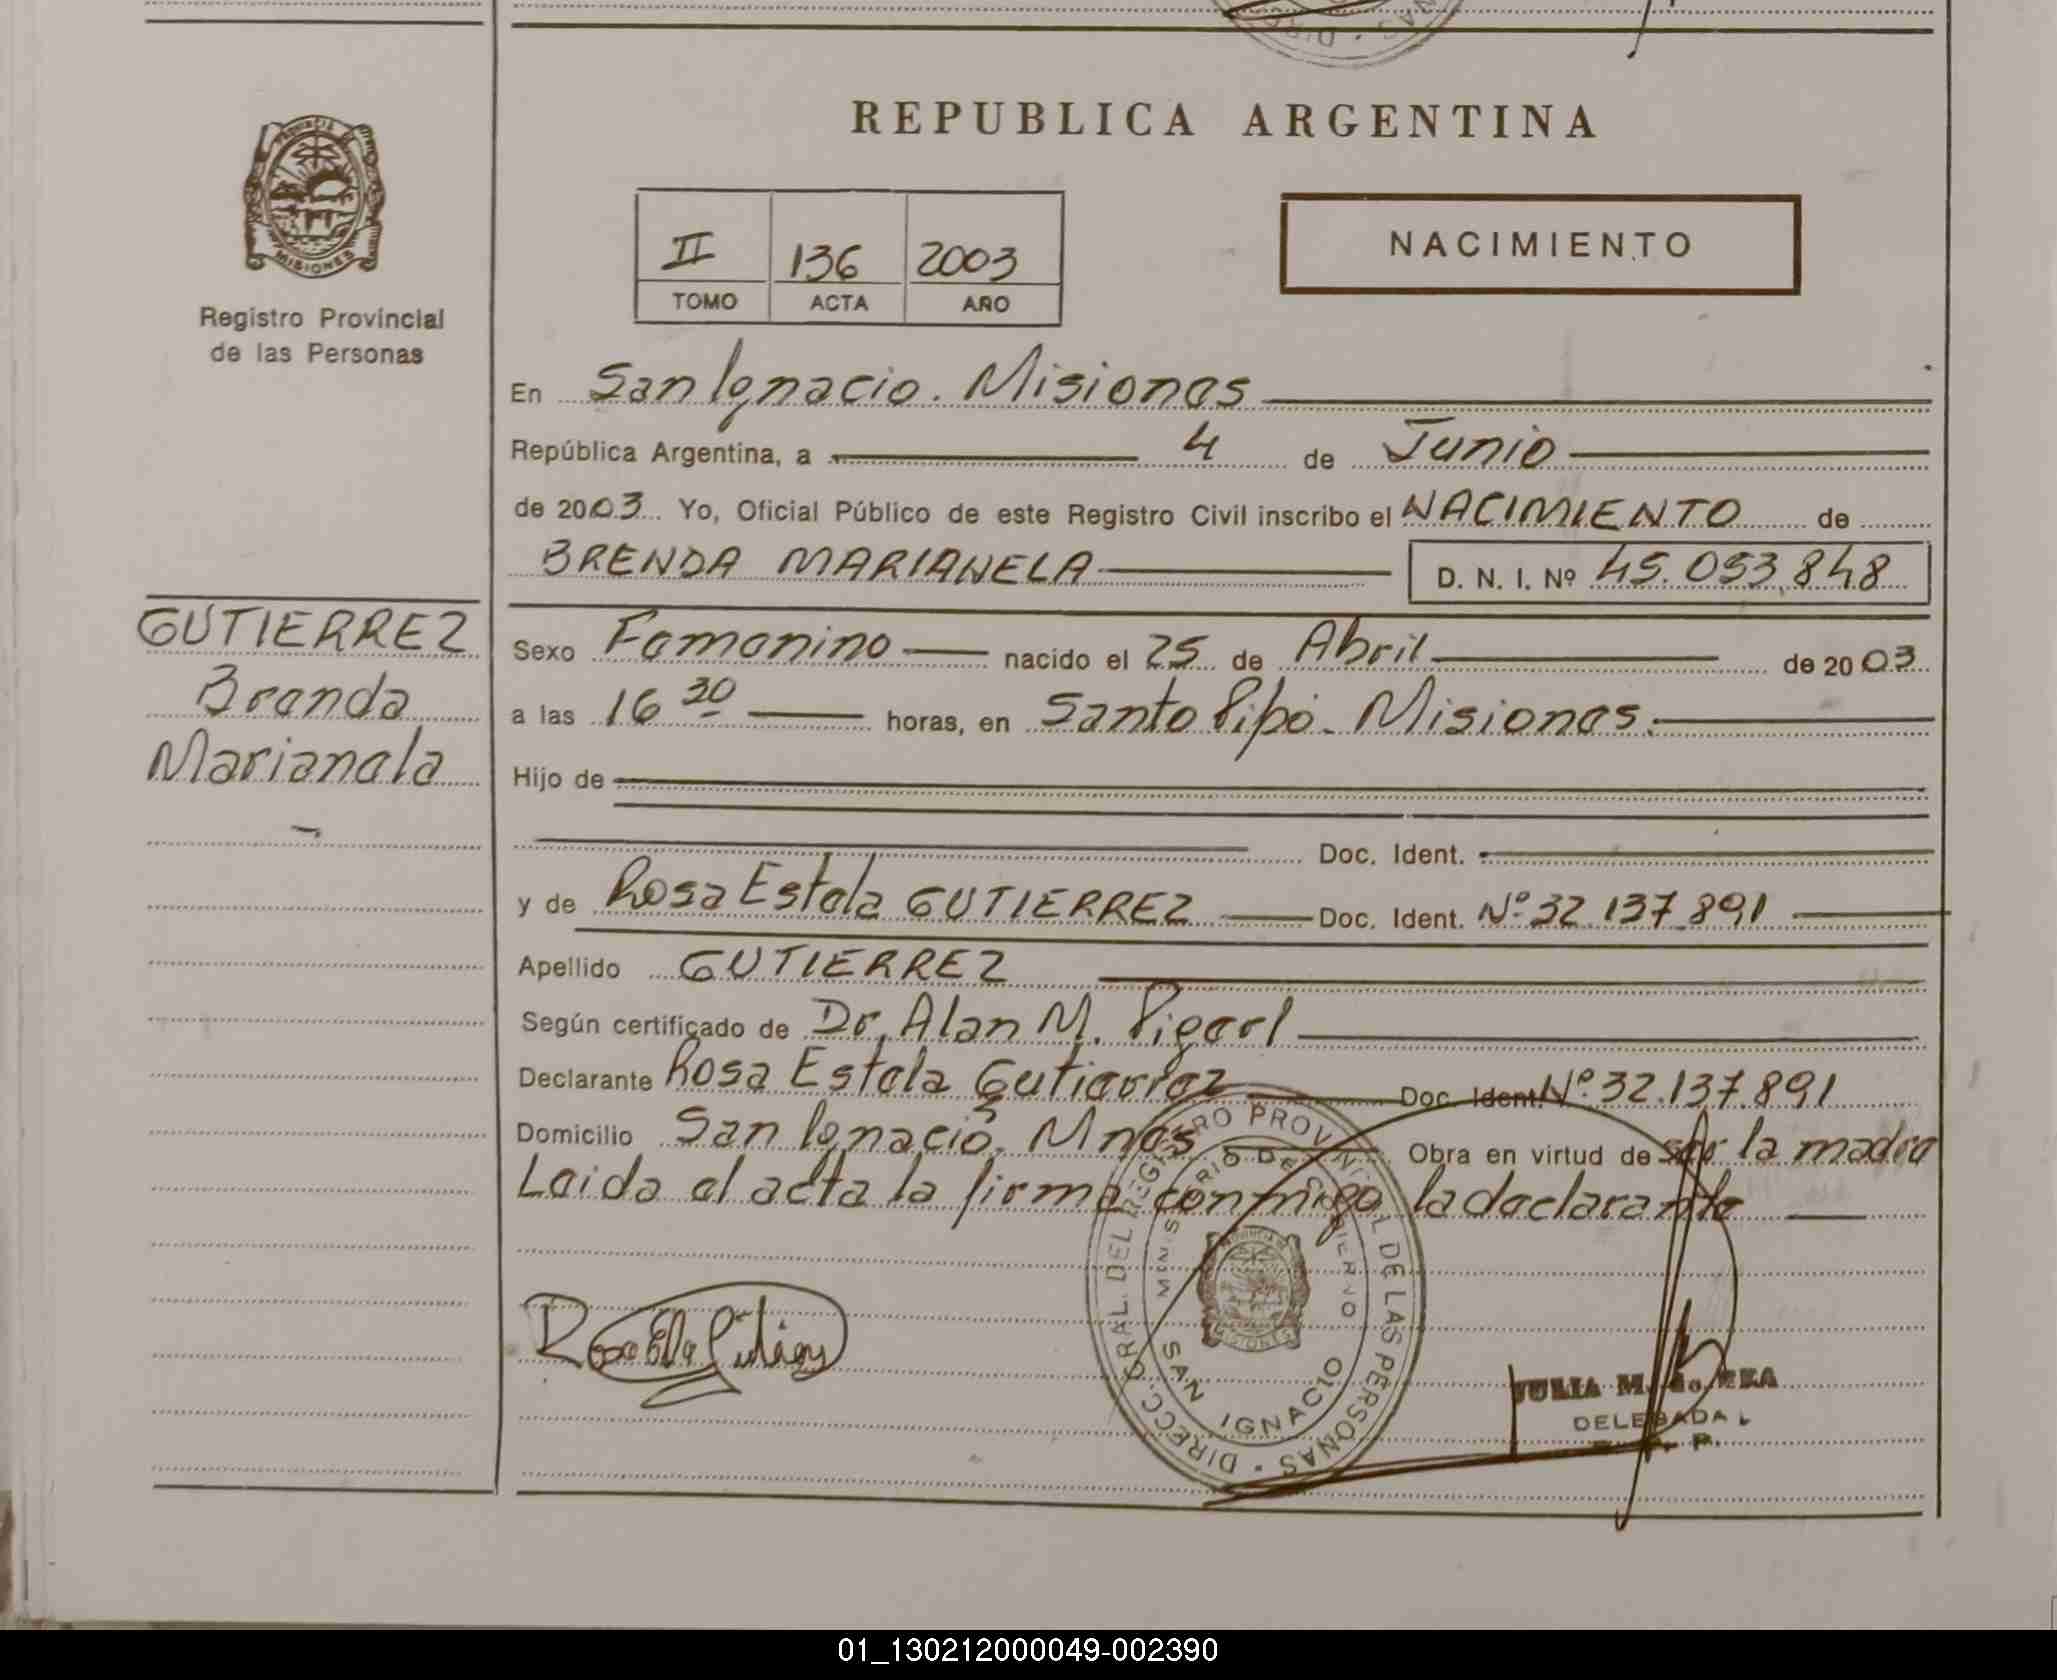 REPUBLICA ARGENTINA
PROVINCIA DE
MISIONES
Registro Provincial
de las Personas
II 136 2003
TOMO ACTA AÑO
NACIMIENTO
En San Ignacio. Misiones
República Argentina, a 4 de Junio
de 2003 Yo, Oficial Público de este Registro Civil inscribo el NACIMIENTO de
BRENDA MARIANELA D. N. I. Nº 45.053,848
GUTIERREZ
Brenda
Marianela
Sexo Femenino nacido el 25 de Abril de 2003
a las 16 30 horas, en Santo Pipó. Misiones.
Hijo de
Doc. Ident.
y de Rosa Estela GUTIERREZ Doc. Ident. Nº 32.137.891
Apellido GUTIERREZ
Según certificado de Dr. Alan M.
Declarante Rosa Estela Gutierrez Doc. Ident. Nº 32.137.891
Domicilio San Ignacio. Mnes Obra en virtud de ser la madre
Leida el acta la firma conmigo la declarante
DIRECC. GRAL. DEL REGISTRO PROVINCIAL DE LAS PERSONAS
MINISTERIO DE GOBIERNO
SAN IGNACIO
MISIONES
JULIA M. de
DELEGADA
01_130212000049-002390